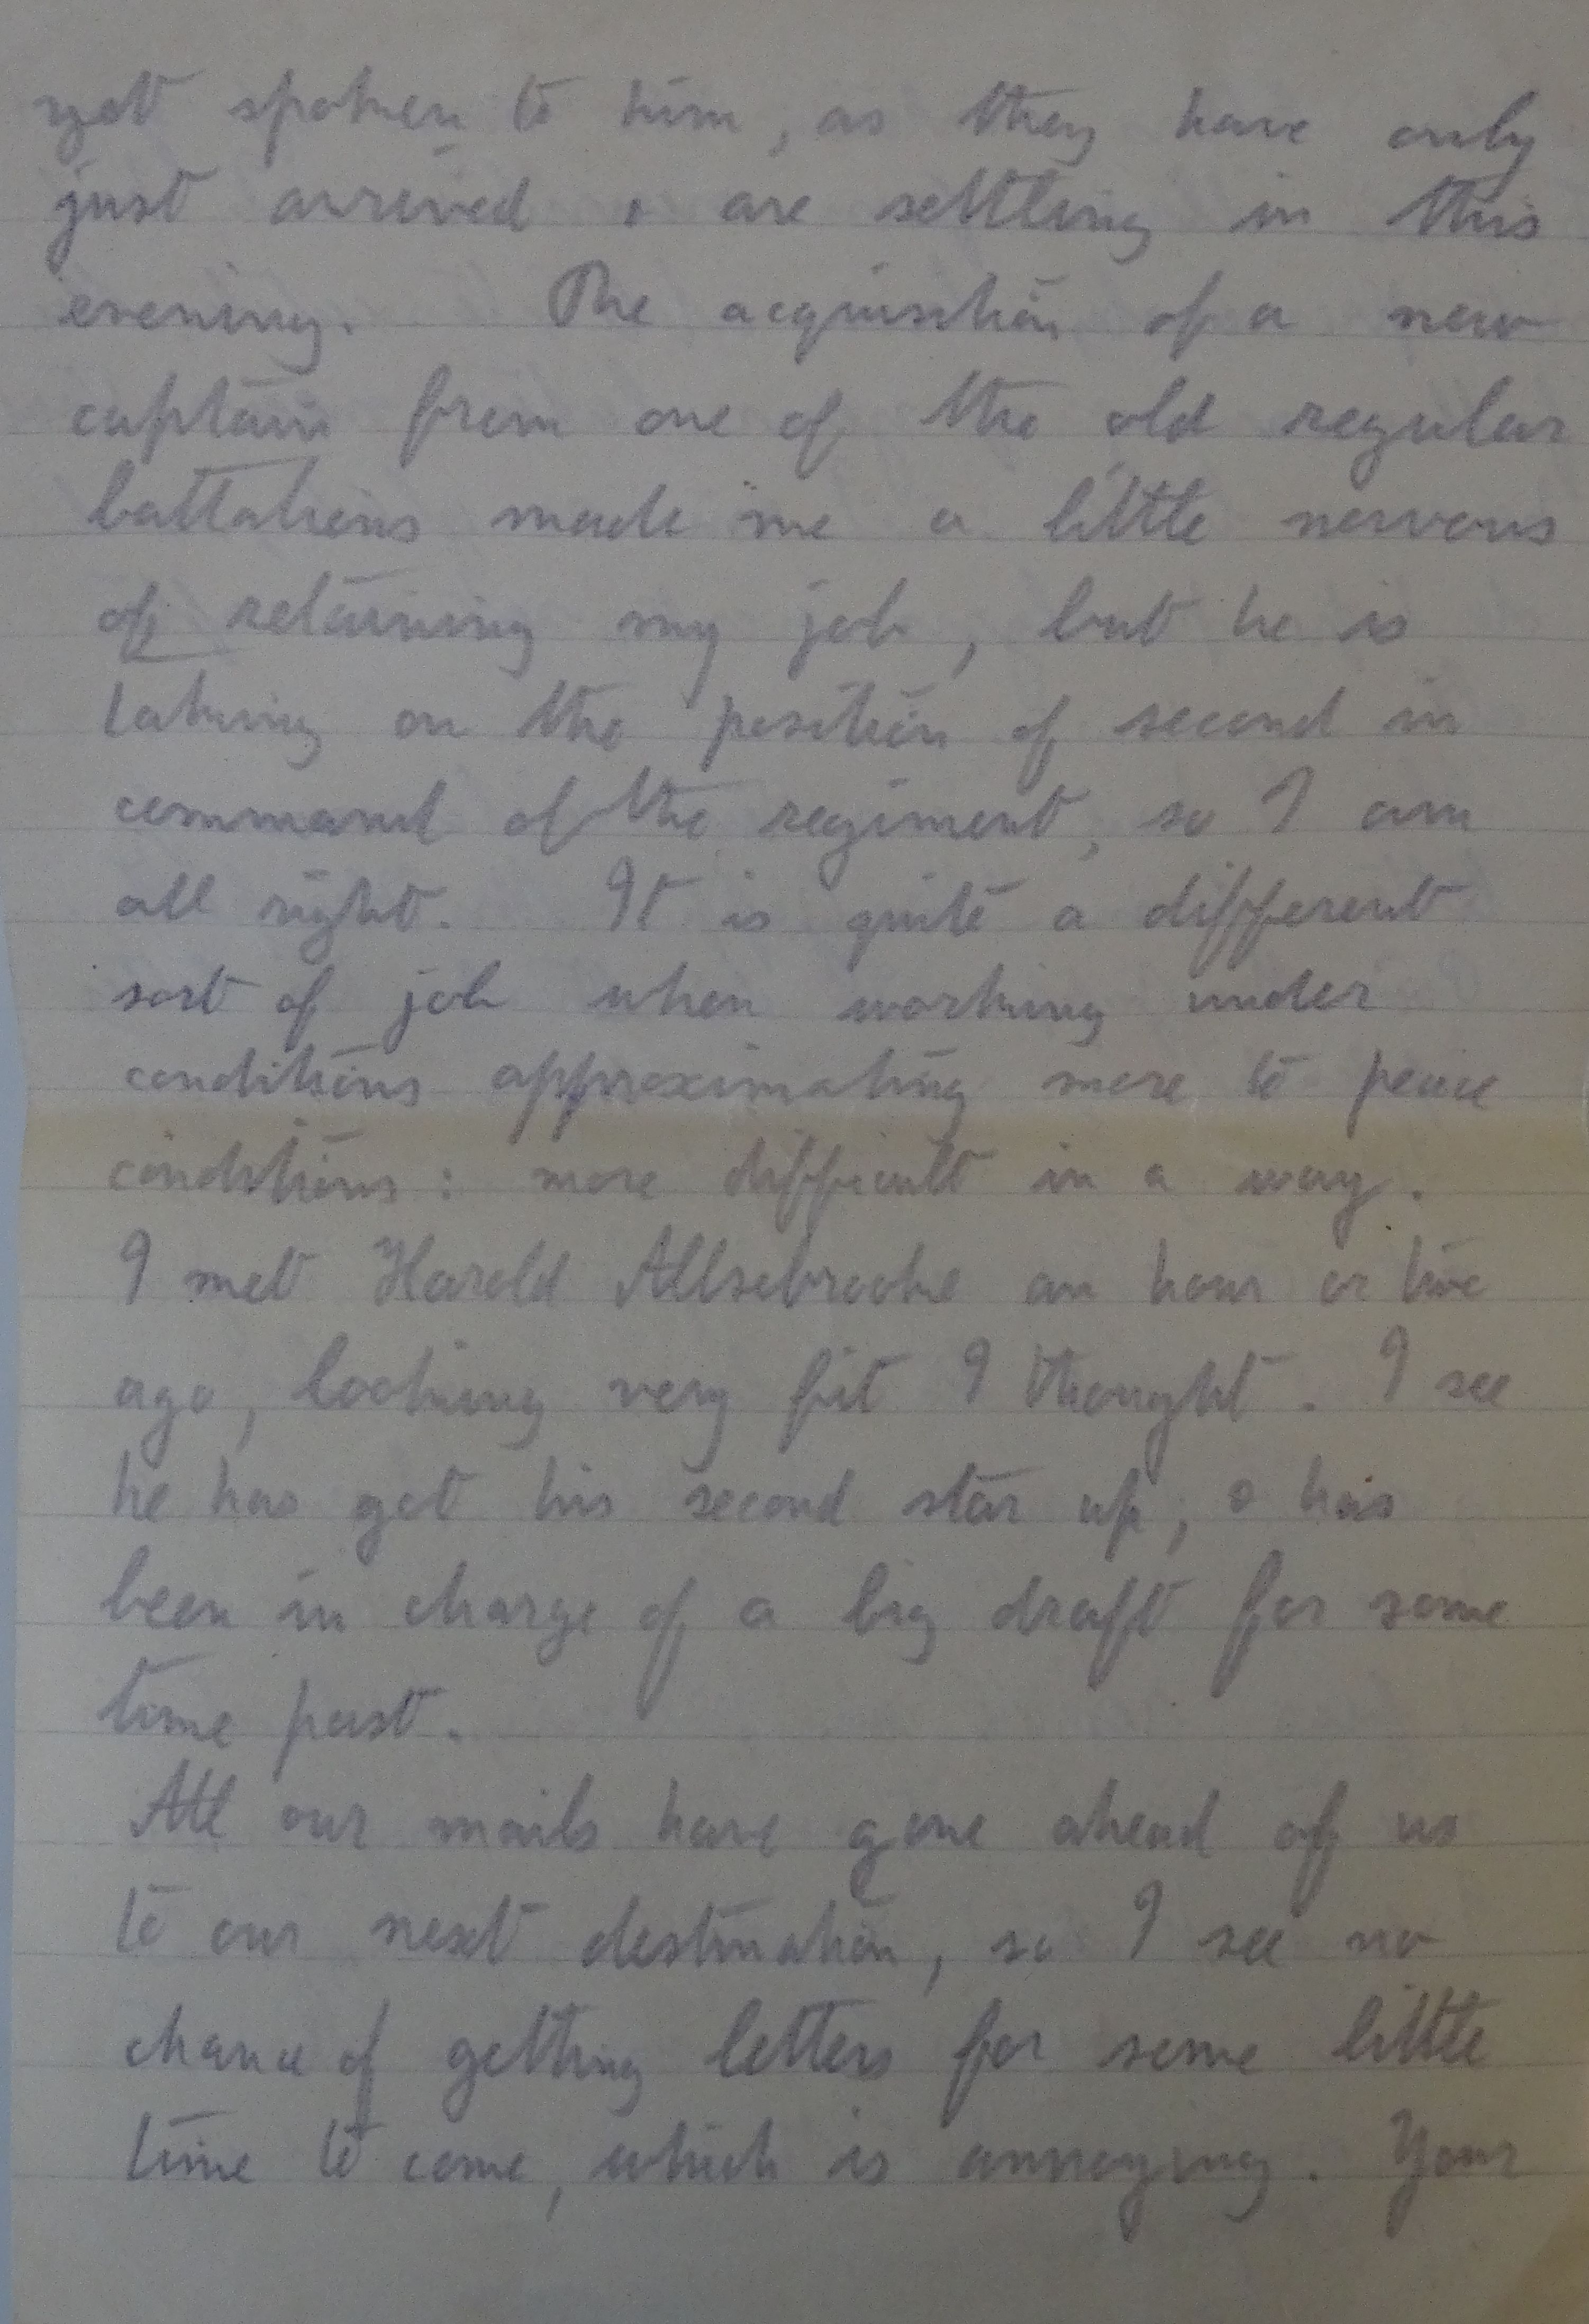 yet spoken to him, as they have only
just arrived & are settling in this
evening. The acquisition of a new
captain from one of the old regular
battalions made me a little nervous
of retaining my job, but he is
taking on the position of second in
command of the regiment, so I am
all right. It is quite a different
sort of job when working under
conditions approximating more to peace
conditions: more difficult in a way.
I met Harold Allsebrooke an hour or two
ago, looking very fit I thought. I see
he has got his second star up, & has
been in charge of a big draft for some
time past.
All our mails have gone ahead of us
to our next destination, so I see no
chance of getting letters for some little
time to come, which is annoying. Your